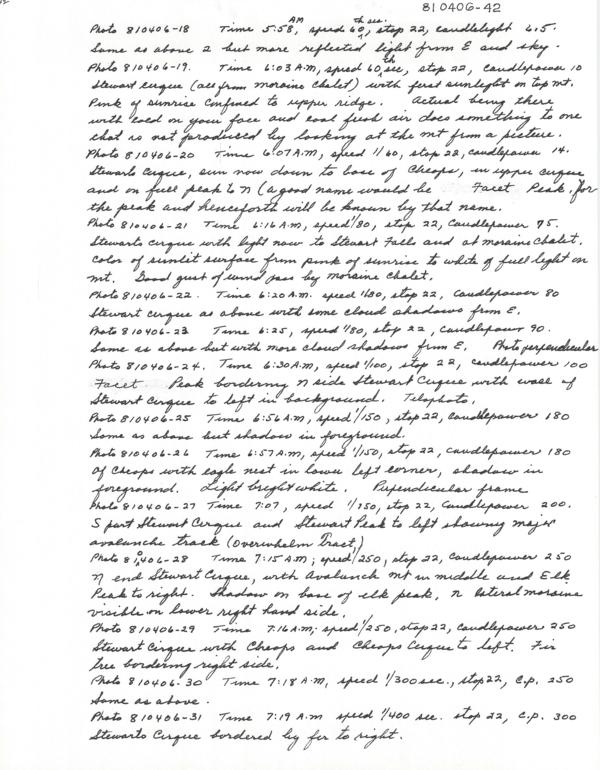 810406-42
Photo 810406-18 Time 5:58 AM, speed 60 th sec., stop 22, candlelight 6.5.
Same as above 2 but more reflected light from E and sky.
Photo 810406-19. Time 6:03 A.M, speed 60 th sec, stop 22, Candlepower 10
Stewart cirque (all from moraine chalet) with first sunlight on top mt.
Pink of sunrise confined to upper ridge. Actual being there
with cold on your face and cool fresh air does something to one
that is not produced by looking at the mt from a picture.
Photo 810406-20 Time 6:07 A.M, speed 1/60, stop 22, candlepower 14.
Stewarts Cirque, sun now down to base of Cheops, in upper cirque
and on full peak to N (a good name would be Facet Peak, for
the peak and henceforth will be known by that name.
Photo 810406-21 Time 6:16 A.M, speed 1/80, stop 22, Candlepower 75.
Stewarts Cirque with light now to Stewart Falls and at moraine chalet.
Color of sunlit surface from pink of sunrise to white of full light on
mt. Good gust of wind pass by moraine chalet.
Photo 810406-22. Time 6:20 A.M. speed 1/80, stop 22, candlepower 80
Stewart cirque as above with some cloud shadows from E.
Photo 810406-23 Time 6:25, speed 1/80, stop 22, candlepower 90.
Same as above but with more cloud shadows from E. Photo perpendicular
Photo 810406-24. Time 6:30 A.M, speed 1/100, stop 22, candlepower 100
Facet Peak bordering N side Stewart Cirque with wall of
Stewart Cirque to left in background. Telephoto.
Photo 810406-25 Time 6:56 A.M, speed 1/150, stop 22, Candlepower 180
Same as above but shadow in foreground.
Photo 810406-26 Time 6:57 A.M, speed 1/150, stop 22, candlepower 180
Of Cheops with eagle nest in lower left corner, shadow in
foreground. Light bright white. Perpendicular frame
Photo 810406-27 Time 7:07, speed 1/150, stop 22, Candlepower 200.
S part Stewart Cirque and Stewart Peak to left showing major
avalanche track (Overwhelm Tract,)
Photo 810406-28 Time 7:15 A.M; speed 1/250, stop 22, Candlepower 250
N end Stewart Cirque, with Avalanch Mt in middle and Elk
Peak to right. Shadow on base of elk peak, N lateral moraine
visible on lower right hand side.
Photo 810406-29 Time 7:16 A.M; speed 1/250, stop 22, candlepower 250
Stewart Cirque with Cheops and Cheops Cirque to left. Fir
tree bordering right side.
Photo 810406-30 Time 7:18 A.M, speed 1/300 sec., stop 22, C.P. 250
Same as above.
Photo 810406-31 Time 7:19 A.M speed 1/400 sec. stop 22, C.P. 300
Stewarts Cirque bordered by fir to right.